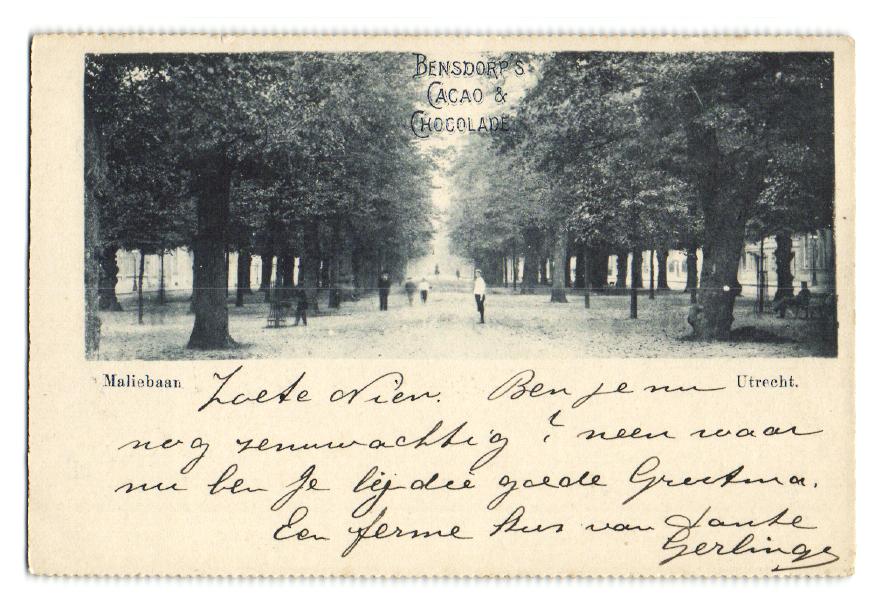 BENSDORP'S
CACAO &
CHOCOLADE
Maliebaan
Utrecht.
Zoete Nien. Ben je nu
nog zenuwachtig? neen waar
nu ben Je bij die goede Grootma.
Een ferme kus van Tante
Gerlinge